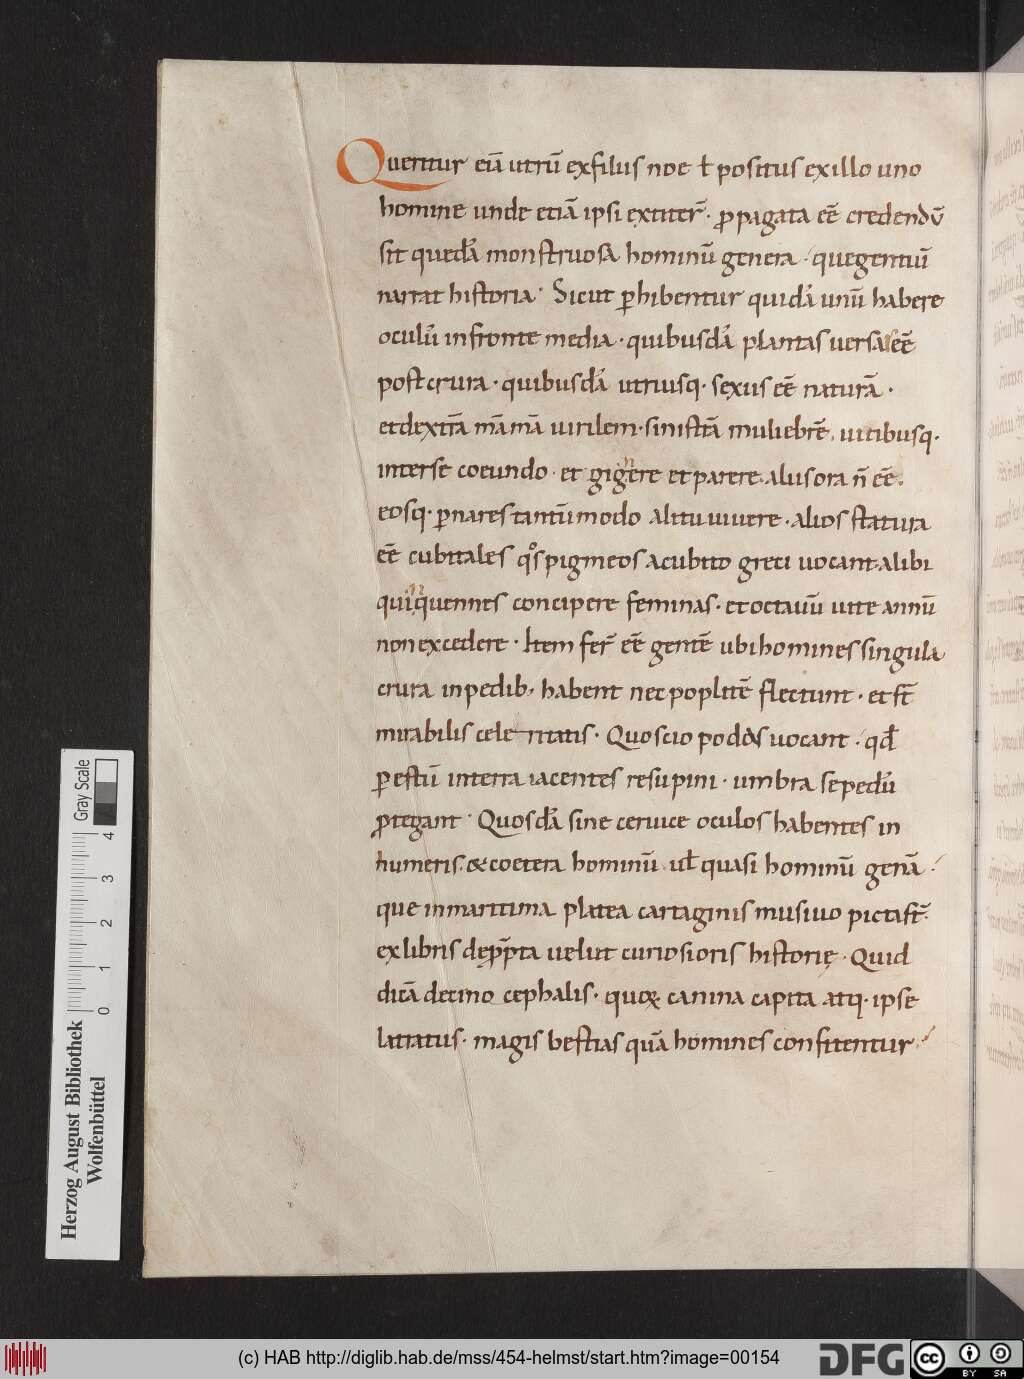 Queritur etiā utrū ex filiis noe ł positus ex illo uno
homine unde etiā ipsi extiter̄. ꝓpagata eē credendū
sit quedā monstruosa hominū genera. que gentiū
narrat historia. Sicut ꝑhibentur quidā unū habere
oculū in fronte media. quibusdā plantas uersas eē
post crura. quibusdā utriusq. sexus eē naturā.
et dextrā māmā uirilem. sinistrā muliebrē. uicibusq.
inter se coeundo. et gignere et parere. aliis ora n̄ eē.
eosq. ꝑ nares tantūmodo alitu uiuere. alios statura
eē cubitales qͦs pigmeos a cubito greci uocant. alibi
quinquennes concipere feminas. et octauū uite annū
non excedere. Item fer̄ eē gentē ubi homines singula
crura in pedib. habent nec poplitē flectunt. et s̄t
mirabilis celeritatis. Quos ciopodas uocant. qđ
ꝑ estū in terra iacentes resupini. umbra se pedū
ꝓtegant. Quosdā sine ceruice oculos habentes in
humeris. & coetera hominū. uł quasi hominū genā.
que in maritima platea cartaginis musiuo picta s̄t.
ex libris deprōpta uelut curiosioris historię. Quid
dicā de cino cephalis. quoꝝ canina capita atq. ipse
latratus. magis bestias quā homines confitentur.
Gray Scale
4
3
2
1
0
Herzog August Bibliothek
Wolfenbüttel
(c) HAB http://diglib.hab.de/mss/454-helmst/start.htm?image=00154
DFG
cc
BY SA